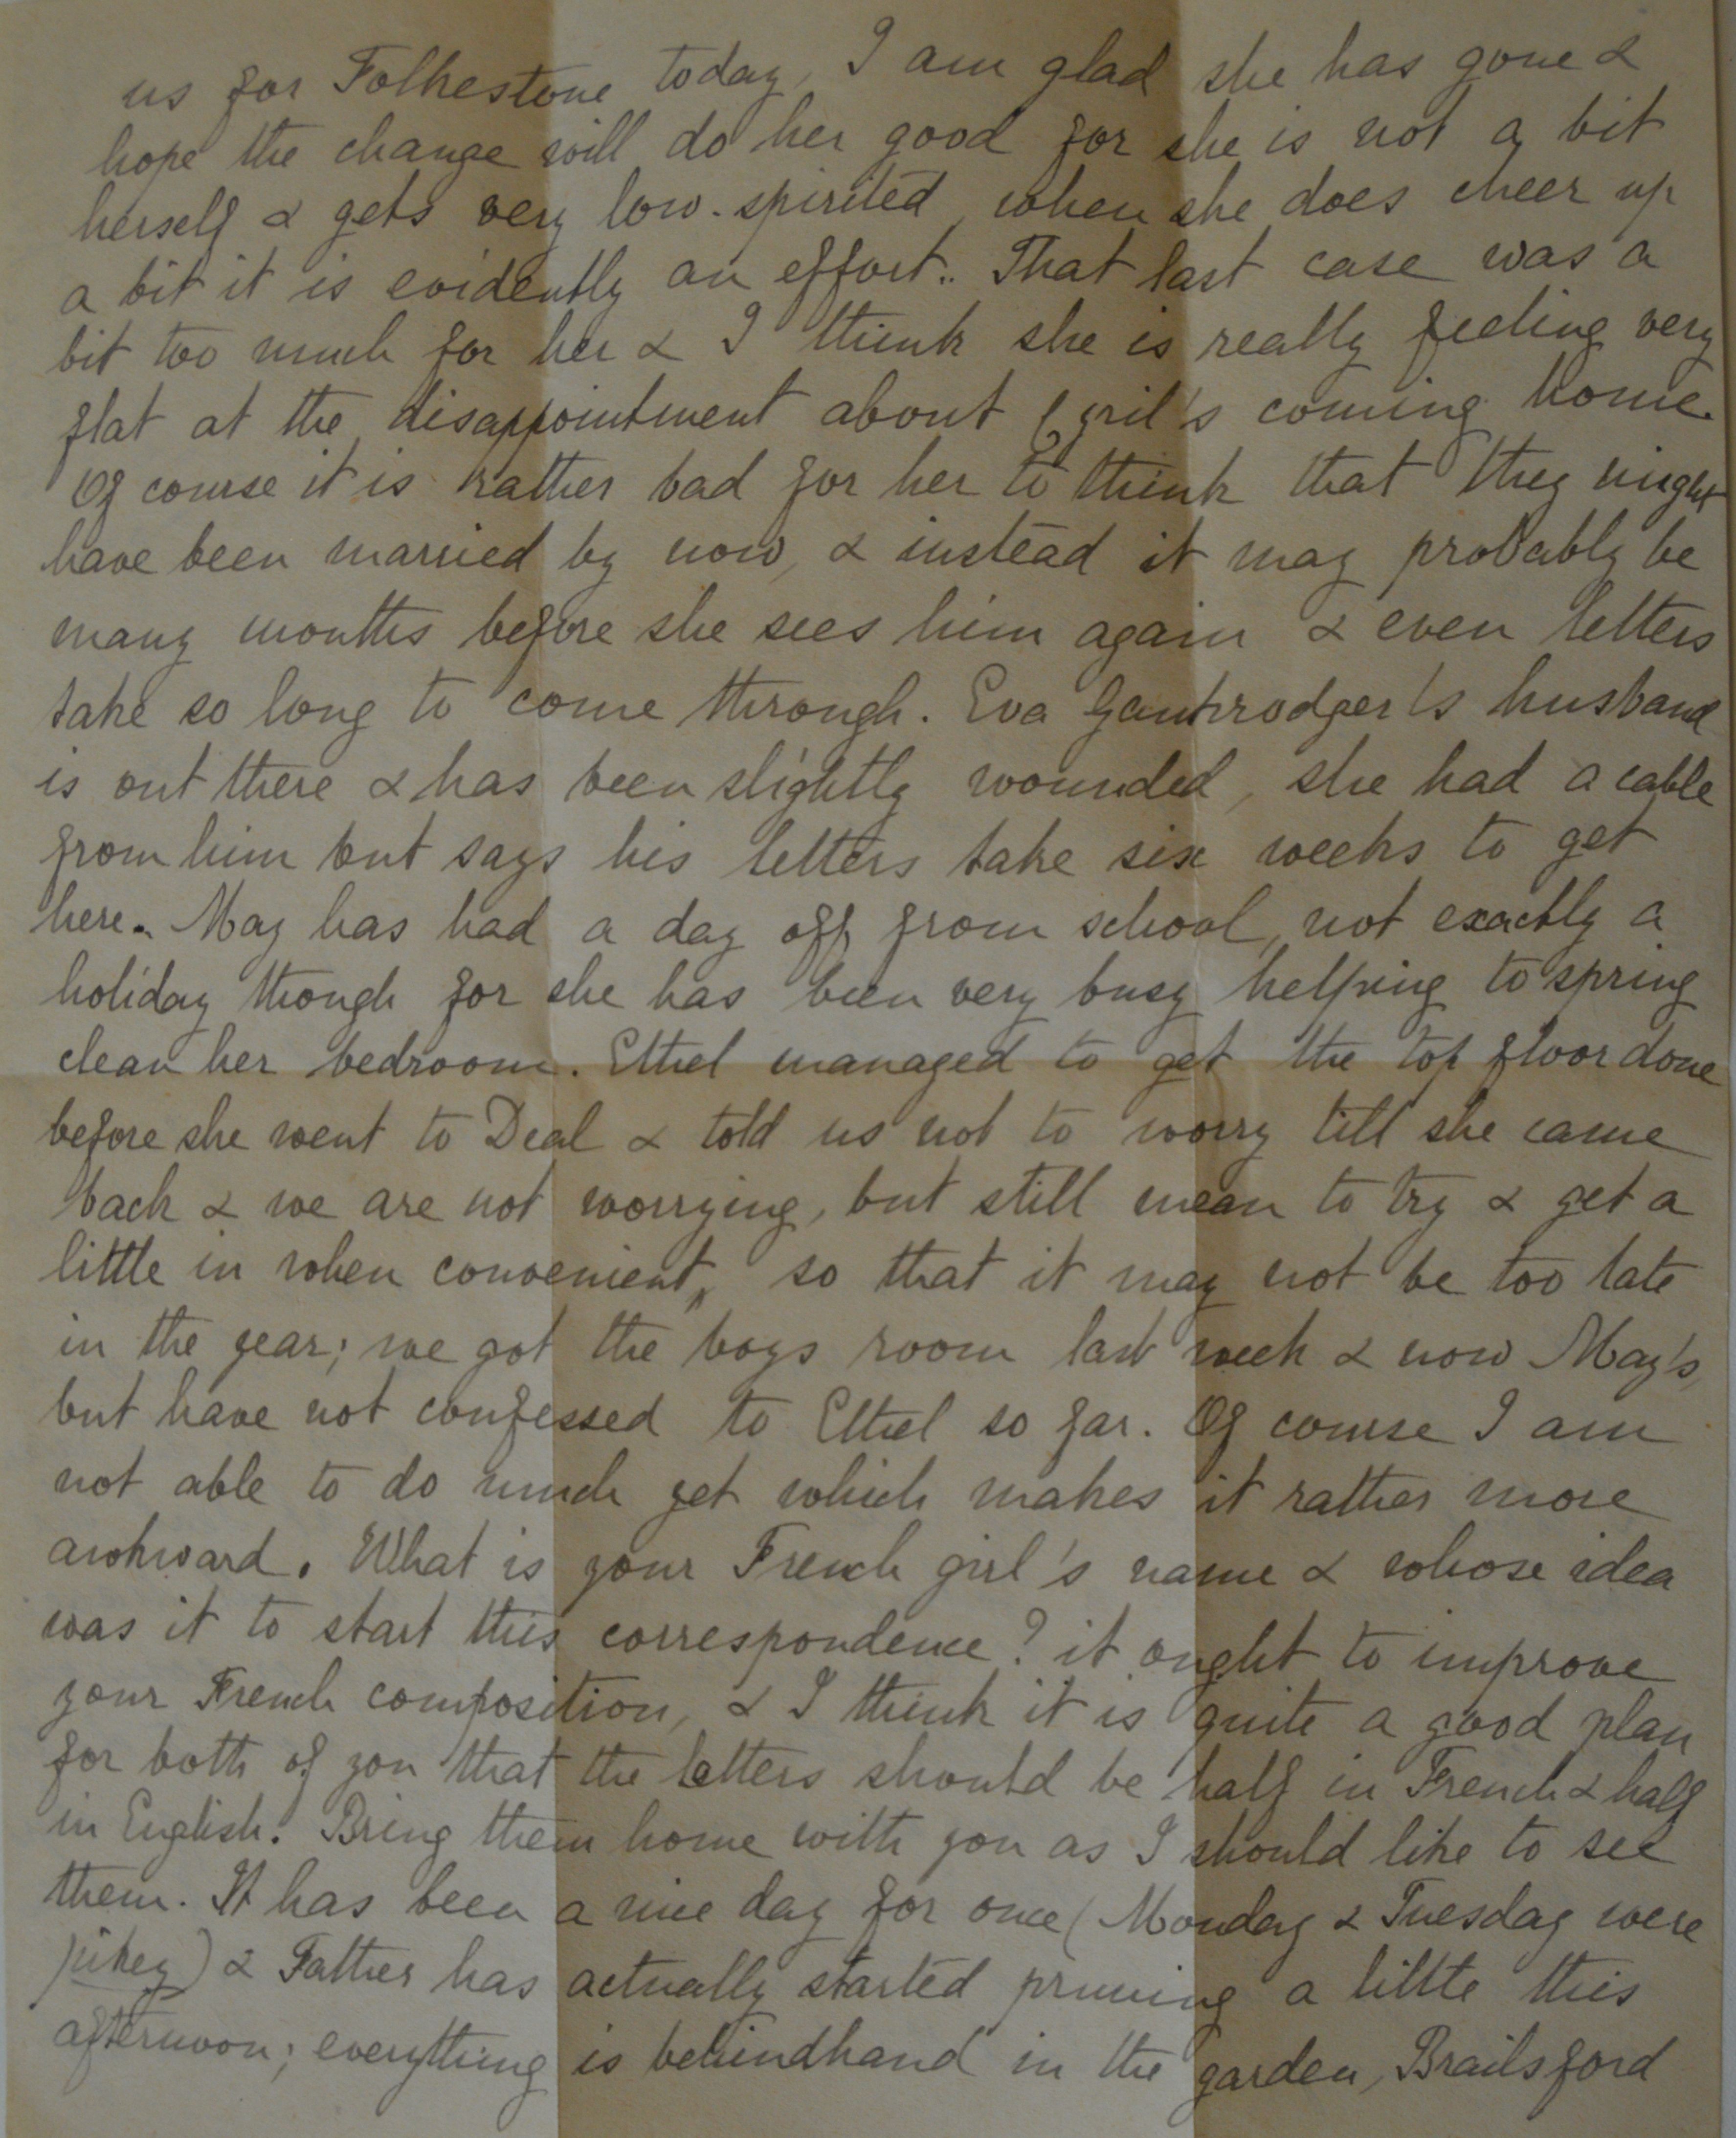 us for Folkestone today, I am glad she has gone &
hope the change will do her good for she is not a bit
herself & gets very low-spirited, when she does cheer up
a bit it is evidently an effort. That last case was a
bit too much for her & I think she is really feeling very
flat at the disappointment about Cyril's coming home.
Of course it is rather bad for her to think that they might
have been married by now, & instead it may probably be
many months before she sees him again & even letters
take so long to come through. Eva Gaukrodger's husband
is out there & has been slightly wounded, she had a cable
from him but says his letters take six weeks to get
here. May has had a day off from school, not exactly a
holiday though for she has been very busy helping to spring
clean her bedroom. Ethel managed to get the top floor done
before she went to Deal & told us not to worry till she came
back & we are not worrying, but still mean to try & get a
little in when convenient, so that it may not be too late
in the year; we got the boys room last week & now May's,
but have not confessed to Ethel so far. Of course I am
not able to do much yet which makes it rather more
awkward. What is your French girl's name & whose idea
was it to start this correspondence? it ought to improve
your French composition, & I think it is quite a good plan
for both of you that the letters should be half in French & half
in English. Bring them home with you as I should like to see
them. It has been a nice day for once (Monday & Tuesday were
) & Father has actually started pruning a little this
afternoon; everything is behindhand in the garden, Brailsford